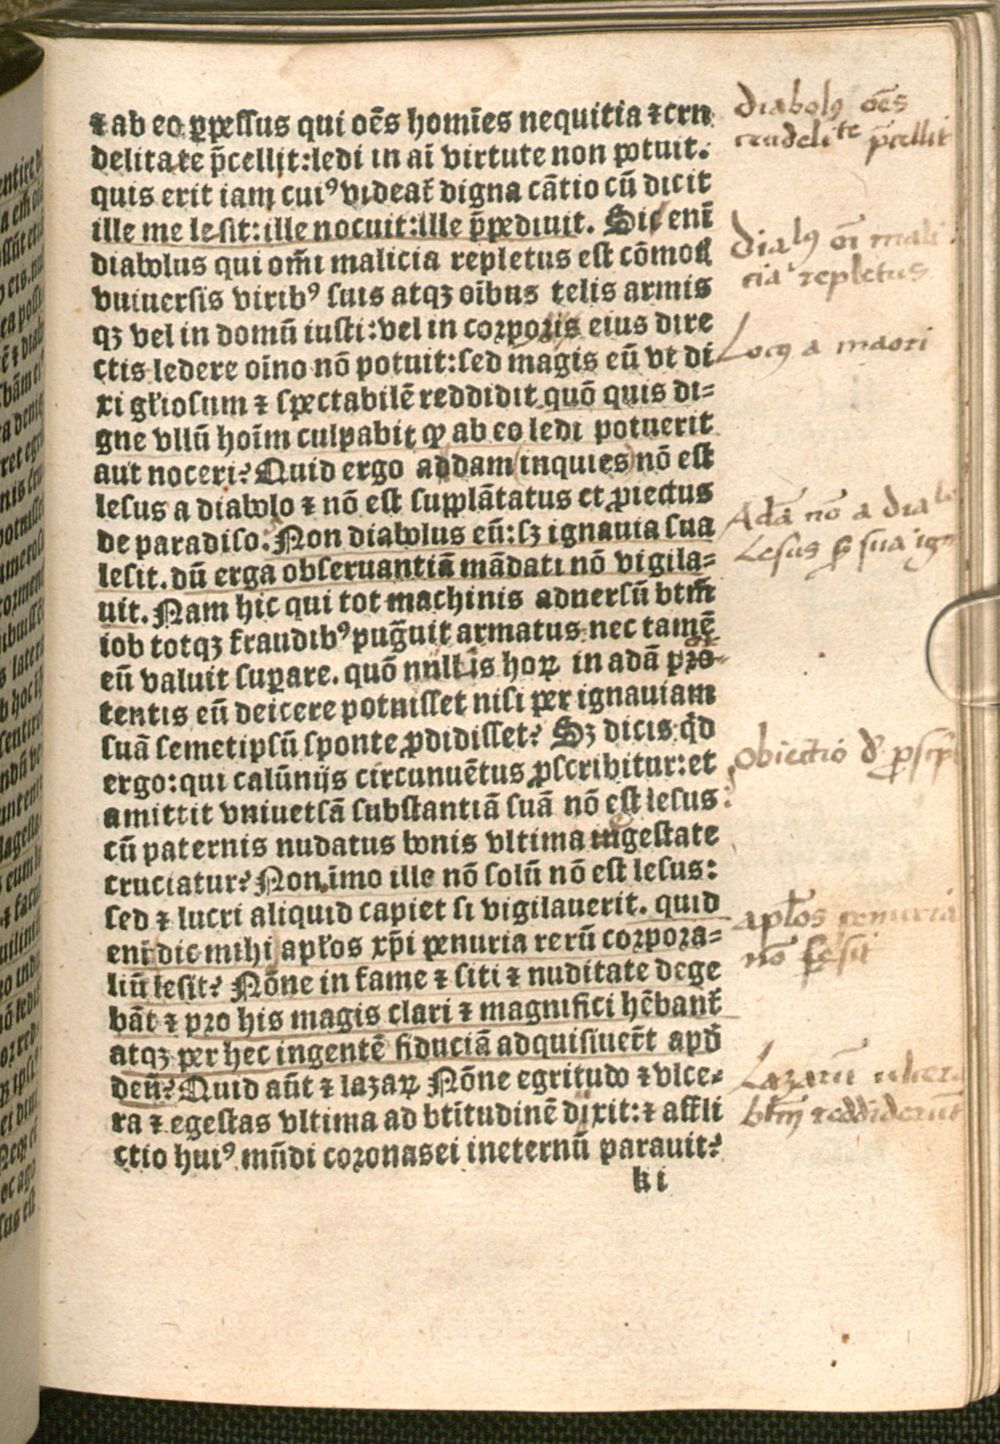 ⁊ ab eo ꝑpessus qui oēs homīes nequitia ⁊ crn
delitate p̄cellit:ledi in aī virtute non potuit.
quis erit iam cuiꝰ videat̄ digna cātio cū dicit
ille me lesit:ille nocuit:ille p̄pediuit. Sic enī
diabolus qui om̄i malicia repletus est cōmotꝰ
vniuersis viribꝰ suis atqꝫ oībus telis armis
qꝫ vel in domū iusti:vel in corporis eius dire
ctis ledere oīno nō potuit:sed magis eū vt di
xi gl̄iosum ⁊ spectabilē reddidit quō quis di-
gne vllū hoīm culpabit ꝙ ab eo ledi potuerit
aut noceri? Quid ergo addam (inquies) nō est
lesus a diabolo ⁊ nō est supplātatus et ꝓiectus
de paradiso. Non diabolus eū:sꝫ ignauia sua
lesit. dū erga obseruantiā mādati nō vigila-
uit. Nam hic qui tot machinis aduersū btm̄
iob totqꝫ fraudibꝰ pug̅uit armatus nec tamē
eū valuit suꝑare. quō nullis hoꝝ in adā pro-
tentis eū deicere potuisset nisi per ignauiam
suā semetipsū sponte ꝓdidisset? Sꝫ dicis qd̄
ergo:qui calūnijs circunuētus ꝓscribitur:et
amittit vniuetsā substantiā suā nō est lesus:
cū paternis nudatus bonis vltima ingestate
cruciatur? Non.īmo ille nō solū nō est lesus:
sed ⁊ lucri aliquid capiet si vigilauerit. quid
enī dic mihi apl̄os xp̄i penuria rerū corpora-
liū lesit? Nōne in fame ⁊ siti ⁊ nuditate dege
bāt ⁊ pro his magis clari ⁊ magnifici hēbant̄
atqꝫ per hec ingentē fiduciā adquisiuer̄t apd̄
deū? Quid aūt ⁊ lazaꝝ Nōne egritudo ⁊ vlce-
ra ⁊ egestas vltima ad bt̄itudinē dixit:⁊ affli
ctio huiꝰ mūdi coronas ei in eternū parauit?
k i
diabolꝰ oēs
crudelite p̄cellit
dialꝰ oī mali
cia repletus
Locꝰ a maori
Adā nō a dialo
Lesus ꝑ sua ign
Obiectio
apl̄os penuria
nō lesit
Lazarū ulcera
btm̄ reddiderunt